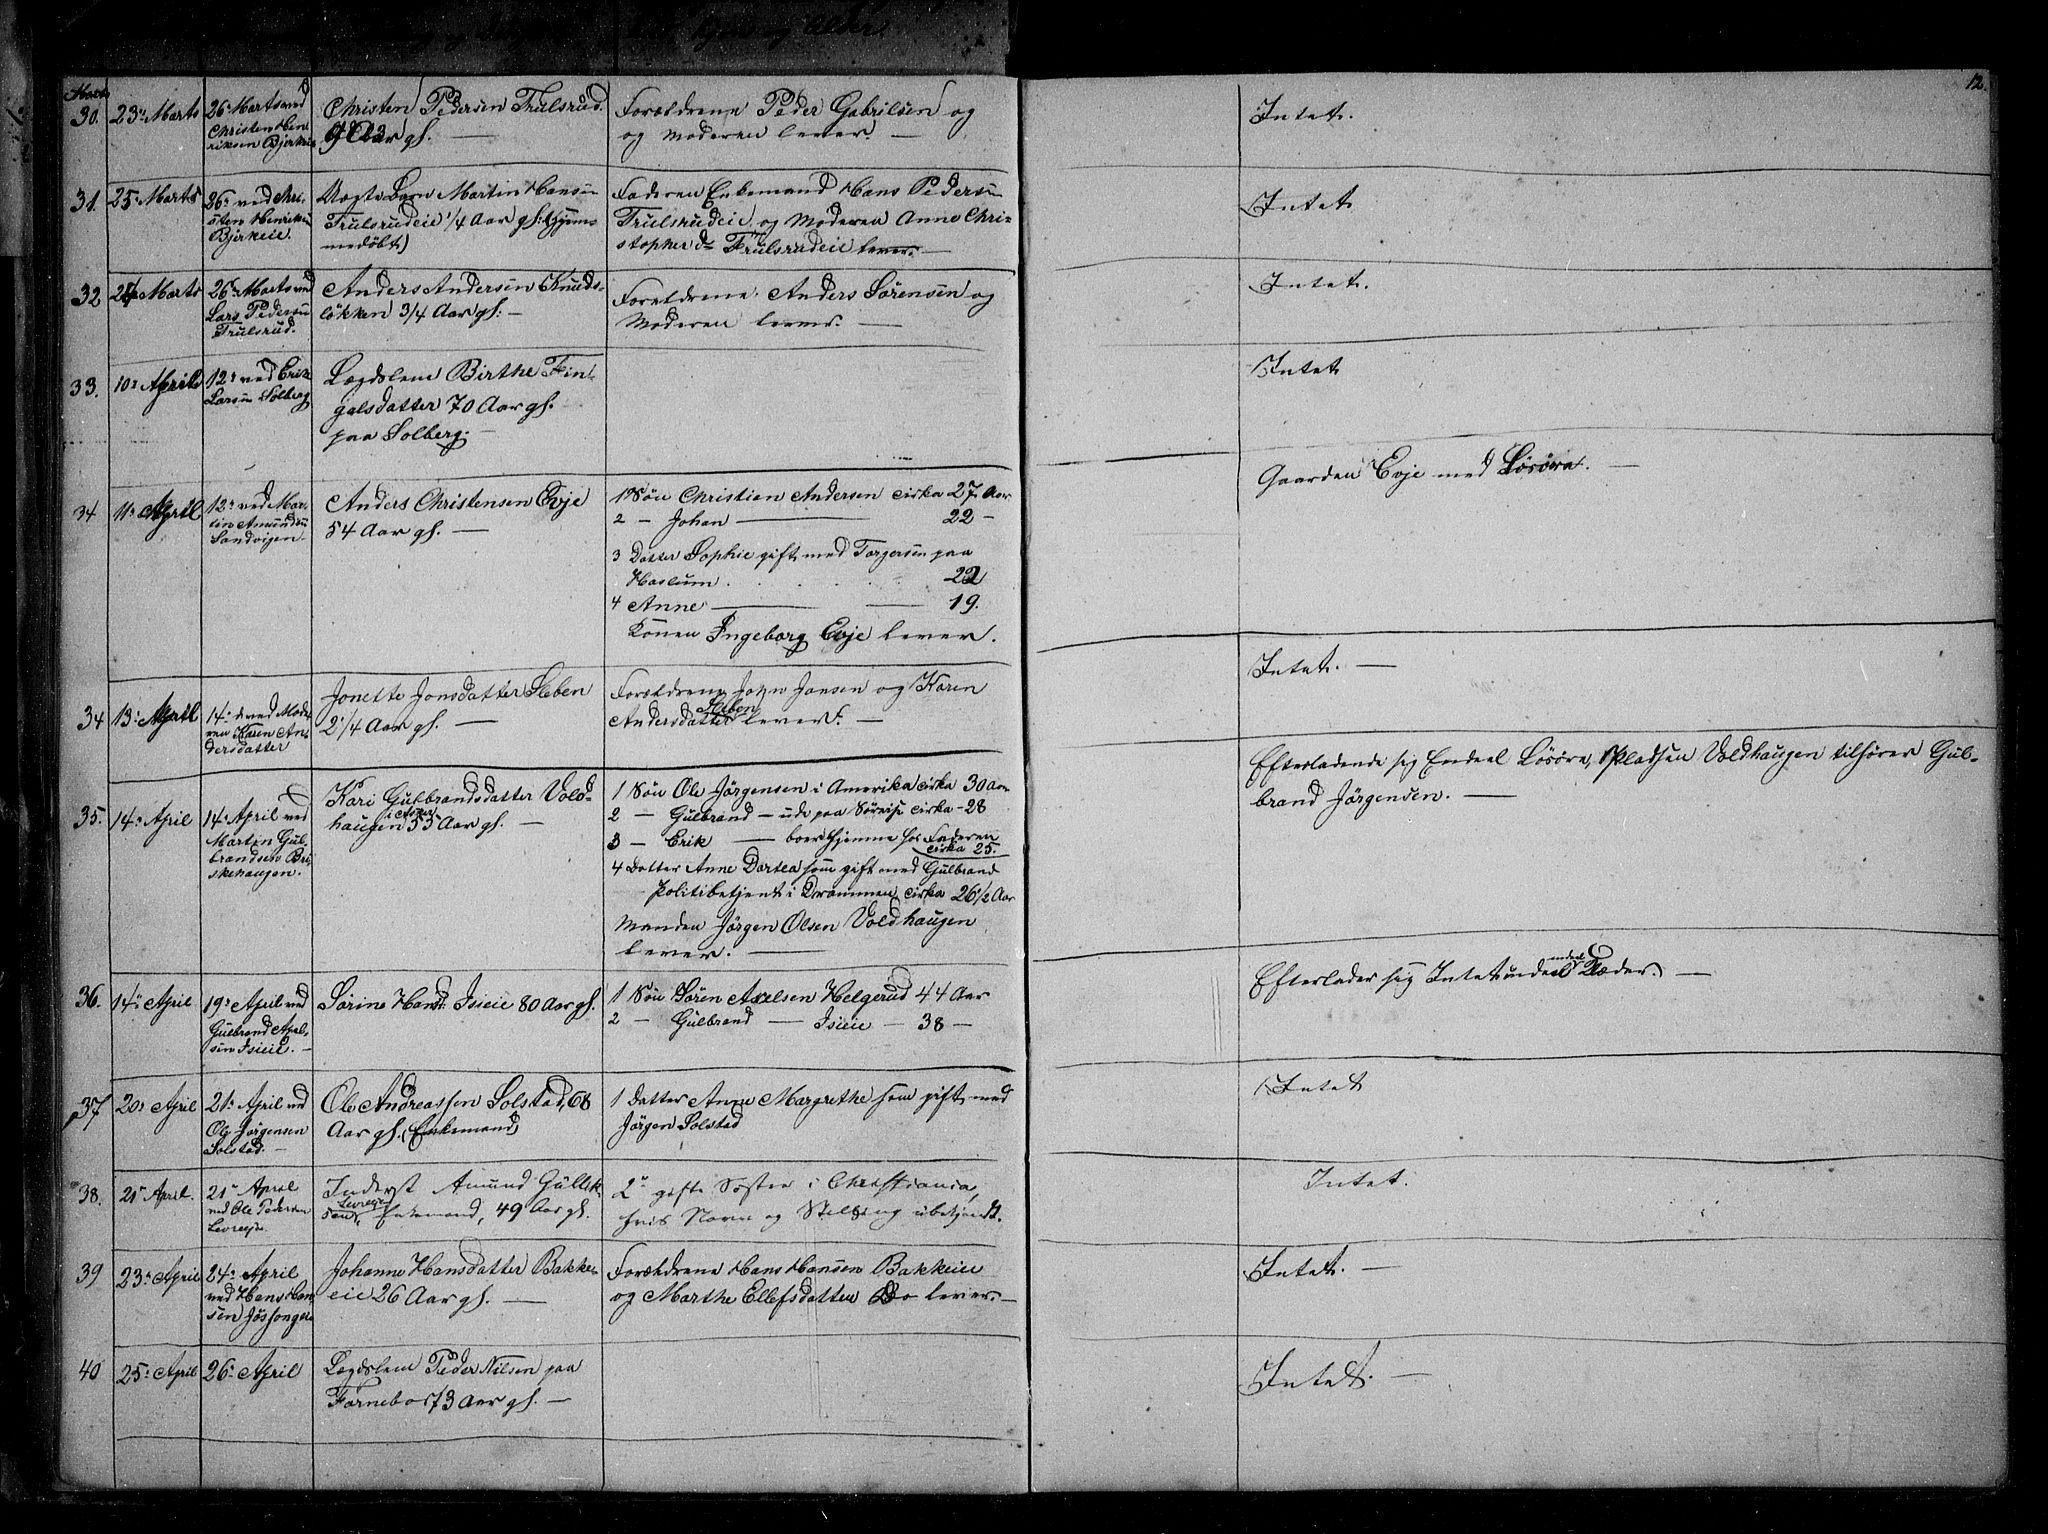 12.
30. 23de Marts
26 Marts ved
Christen Hen
riksen Bjerkeie
Christen Pedersen Trulsrud
Aar gl. —
Forældrene Peder Gabrilsen og
og Moderen lever. —
Intet.
31. 25 Marts
26 ved Chri-
sten Henriksen
Bjerkeie.
Uægte Barn Martin Hansen
Trulsrudeie 1/4 Aar gl. (Hjem-
medøbt)
Faderen Enkemand Hans Pedersen
Trulsrudeie og Moderen Anne Chri-
stopherd. Trulsrudeie lever. —
Intet
32 Marts
26 Marts ved
Lars Pedersen
Trulsrud.
Anders Andersen Knuds-
løkken 3/4 Aar gl. —
Forældrene Anders Sørensen og
Moderen lever. —
Intet.
33. 10 April
12 ved Erik
Larsen Solberg
Lægdslem Birthe Fin-
galsdatter 70 Aar gl.
paa Solberg. —
Intet
34 11 April
12 ved Mar-
tin Amundsen
Sandvigen
Anders Christensen Evje
54 Aar gl. —
1 Søn Christian Andersen cirka 27 Aar
2 — Johan — 22 —
3 Datter Sophie gift med Torgersen paa
Haslum . . . . 22
4 Anne — — 19.
Konen Ingeborg Evje lever.
Gaarden Evje med Løsøre. —
34 13 April
14 ved Mode-
ren Karen An-
dersdatter
Jonette Jonsdatter Sleben
2 1/4 Aar gl. —
Forældrene John Jonsen og Karen
Andersdatter Sleben lever. —
Intet. —
35. 14 April
14 April ved
Marten Gul-
brandsen Bri-
skehaugen.
Kari Gulbrandsdatter Vold-
haugen i Asker 53 Aar gl. —
1 Søn Ole Jørgensen i Amerika cirka 30 Aar
2 — Gulbrand — ude paa Søreise cirka - 28
3 — Erik — boer hjemme hos Faderen
cirka 25.
4 Datter Anne Dortea som gift med Gulbrand
Politibetjent i Drammen cirka 26 1/2 Aar
Manden Jørgen Olsen Voldhaugen
lever. —
Efterladende sig Endeel Løsøre, Pladsen Voldhaugen tilhører Gul-
brand Jørgensen. —
36. 14 April
19 April ved
Gulbrand Axel-
sen Isieie. —
Sørine Hansd. Isieie 80 Aar gl.
1 Søn Søren Axelsen Helgerud 44 Aar
2 — Gulbrand — Isieie — 38 —
Efterlader sig Intet uden endeel Klæder. —
37 20 April
21 April ved
Ole Jørgensen
Solstad. —
Ole Andreassen Solstad, 68
Aar gl. (Enkemand)
1 Datter Anne Margrethe som gift med
Jørgen Solstad
Intet
38. 21 April.
21 April
ved Ole Pedersen
Levreise
Inderst Amund Gullik-
sen Levreise, Enkemand, 49 Aar gl.
2 gifte Søstre i Christiania,
hvis Navne og Stilling ubekjendt.
Intet.
39 23 April
24 April
ved Hans Han-
sen Jøssong
Johanne Hansdatter Bakke-
eie 26 Aar gl. —
Forældrene Hans Hansen Bakkeie
og Marthe Ellefsdatter Do lever. —
Intet. —
40 25 April
26 April
Lægdslem Peder Nilsen paa
Fornebo 73 Aar gl. —
Intet. —